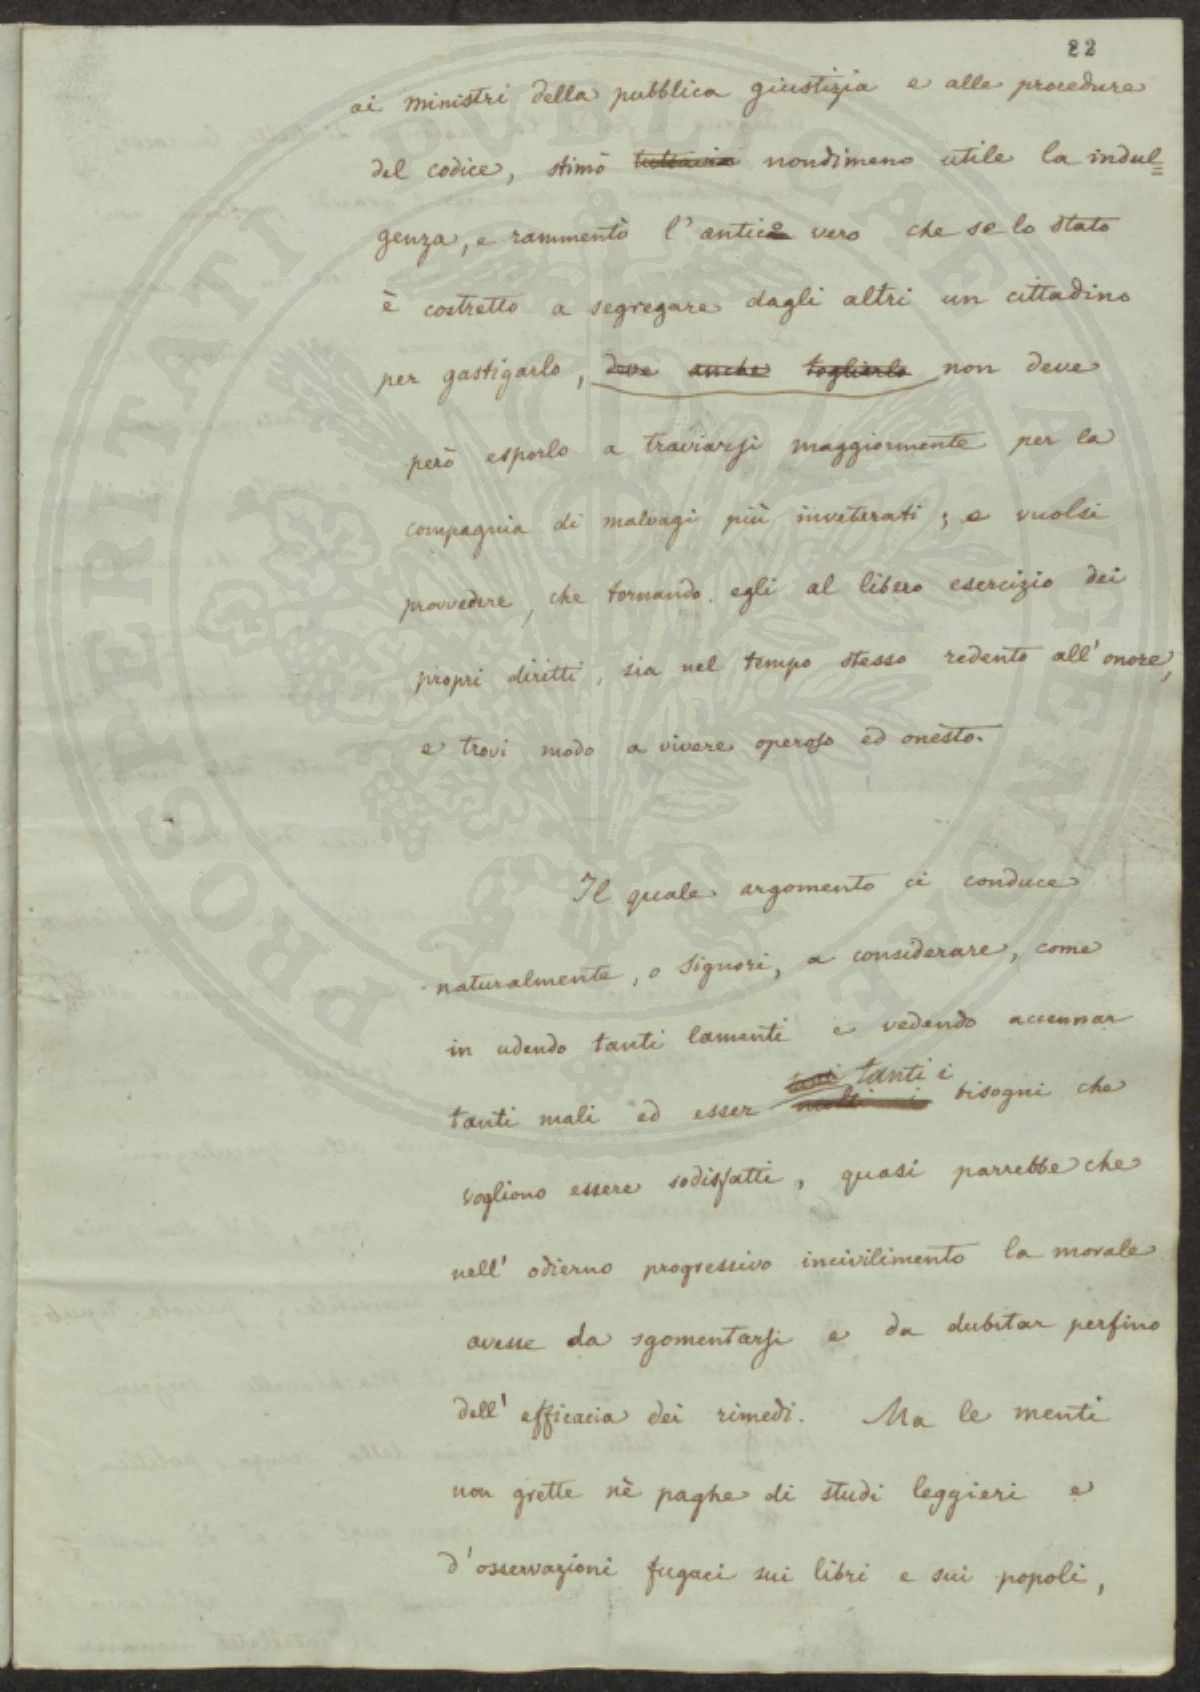 22
ai ministri della pubblica giustizia e alle procedure
del codice, stimò tuttavia nondimeno utile la indul=
genza, e rammentò l'antico vero che se lo stato
è costretto a segregare dagli altri un cittadino
per gastigarlo, deve anche toglierlo non deve
però esporlo a traviarsi maggiormente per la
compagnia di malvagi più inveterati; e vuolsi
provvedere, che tornando egli al libero esercizio dei
propri diritti, sia nel tempo stesso redento all'onore,
e trovi modo a vivere operoso ed onesto.
Il quale argomento ci conduce
naturalmente, o Signori, a considerare, come
in udendo tanti lamenti e vedendo accennar
tanti i
tanti mali ed esser molti i bisogni che
vogliono essere sodisfatti, quasi parrebbe che
nell' odierno progressivo incivilimento la morale
avesse da sgomentarsi e da dubitar perfino
dell' efficacia dei rimedi. Ma le menti
non grette nè paghe di studi leggieri e
d'osservazioni fugaci sui libri e sui popoli,
PROSPERITATI PUBLICAE AUGENDAE